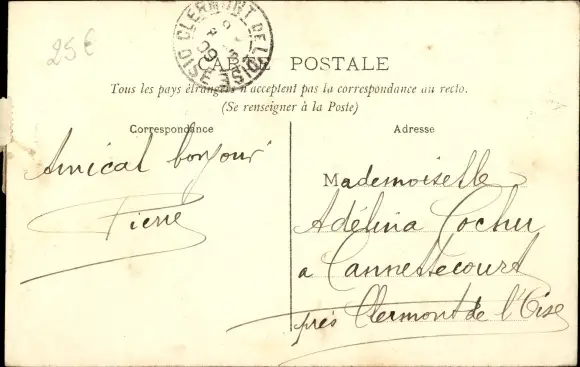 25€
CLERMONT DE L'OISE
OISE
CARTE POSTALE
Tous les pays étrangers n'acceptent pas la correspondance au recto.
(Se renseigner à la Poste)
Correspondance
Adresse
Amical bonjour
Pierre
Mademoiselle
Adélina Cochu
a Cannettecourt
près Clermont de l'Oise